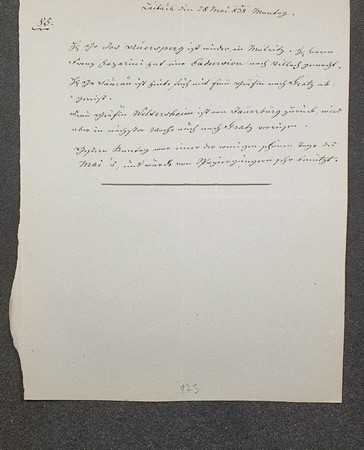 Laibach den 28 Mai 838. Montag.
85.
Jos Auersperg ist wieder in Baron
Franz Lazarini hat eine Excursion nach Villach gemacht.
Saurau ist heute früh mit Frau Gräfin nach Gratz ab-
gereist.
Frau Gräfin Welsersheim ist von zurück, wird
aber in nächster Woche auch nach Gratz verreisen.
Gestern Sonntag war einer der wenigen schönen Tage des
Mai's, und wurde von Spaziergängern sehr benützt.
173